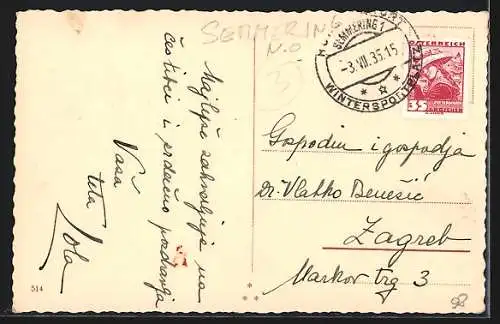 SEMMERING
N.Ö
3
KURORT
SEMMERING 1
-3.VII.35.15
WINTERSPORTPLATZ
ÖSTERREICH
35
GROSCHEN
Najljepše zahvaljuje na
čestitci i srdačno pozdravlja
Vaša
teta
Lola
Gospodin i gospodja
dr. Vlatko Benešić
Zagreb
Markov trg 3
514
98